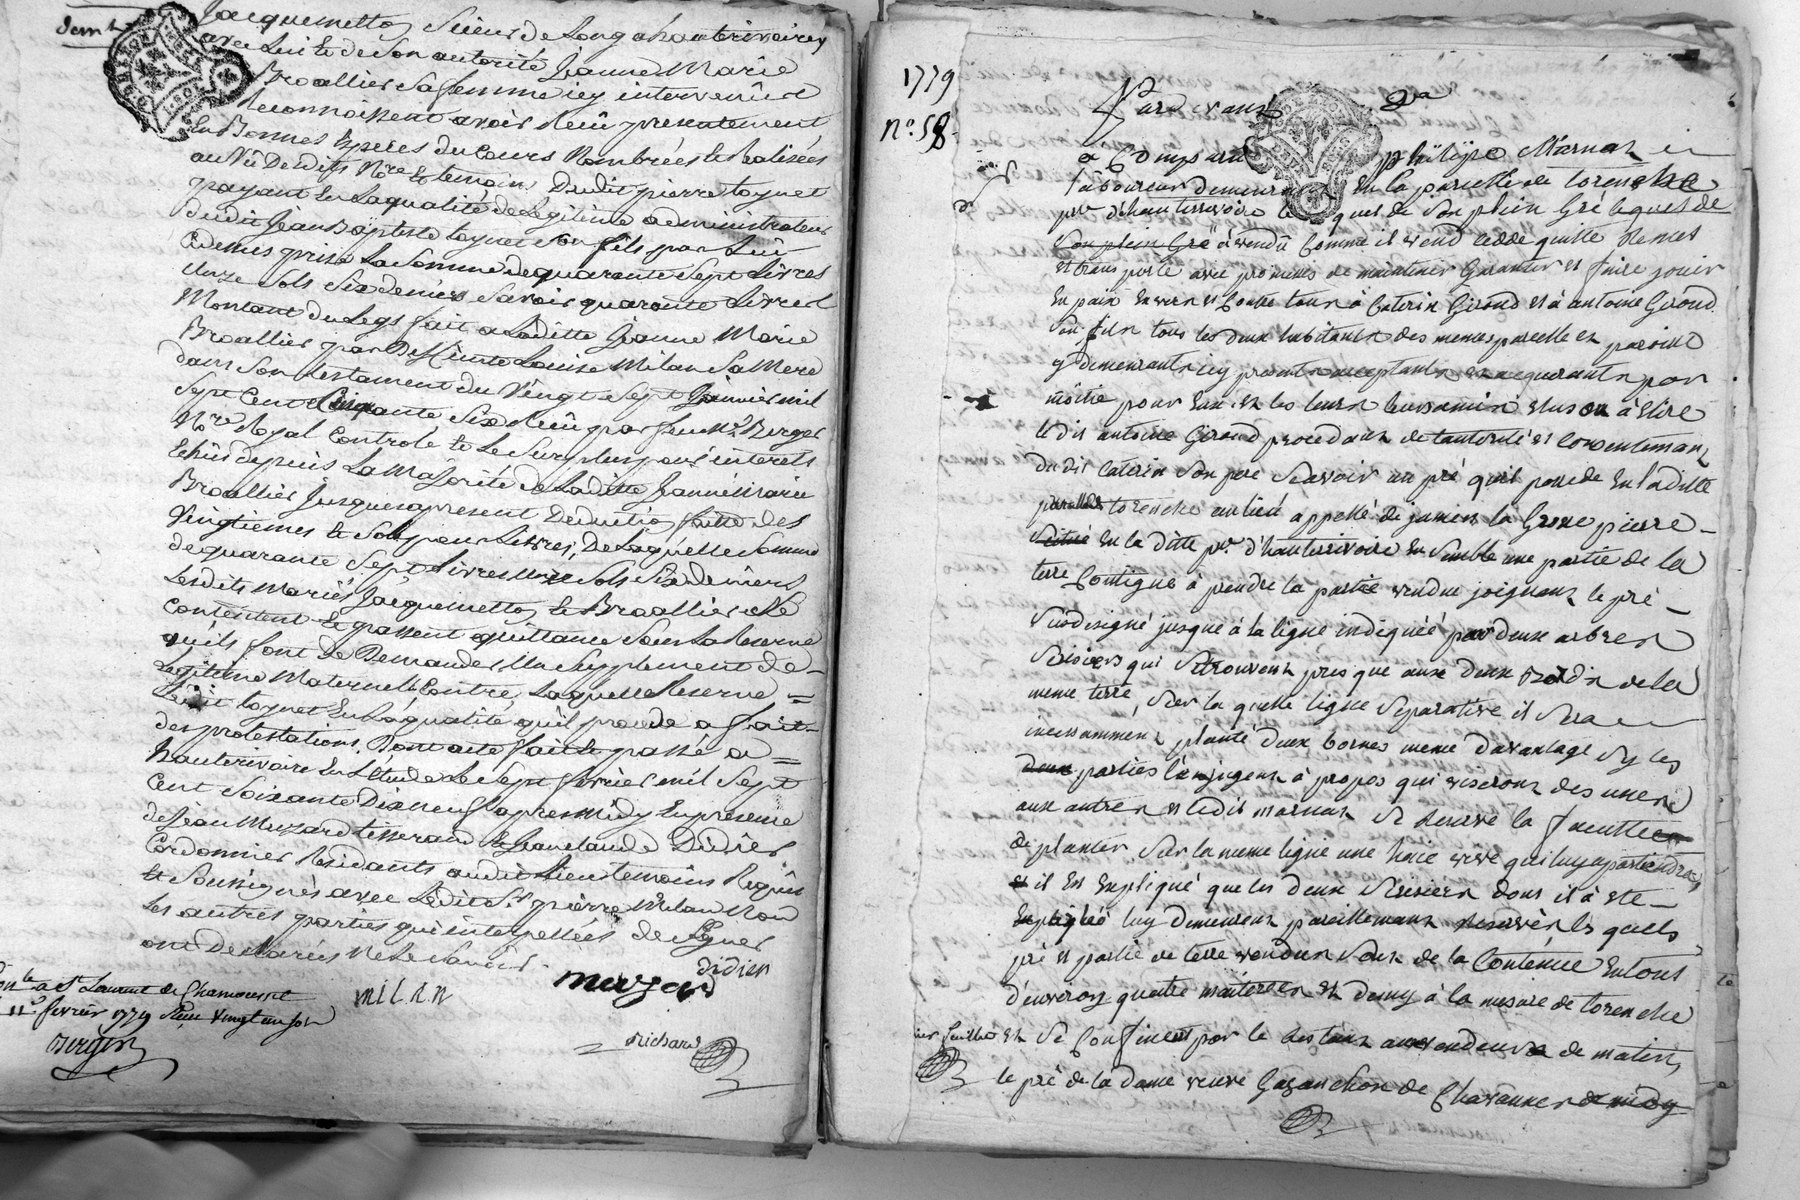 Jacquemetton Sieur de Long a hauterivoire
avec Luite de Son autorité Jeanne Marie
Broallier Sa femme icy intervenûe
Reconnoissent avoir Reçu presentement
En Bonnes Especes du Cours Nombrées et Realisées
au Vû Desdits Nore & temoins Dudit pierre toynet
payant En La qualité de Légitime administrateur
Dudit Jean Baptiste toynet Son fils par Lui
Cidessus prise La Somme de quarante Sept Livres
onze Sols Six deniers Savoir quarante Livres
Montant du Legs fait a Laditte Jeanne Marie
Broallier par Deffûnte Louise Milan Sa Mere
dans Son testament du Vingt Sept Janvier mil
Sept Cent Cinquante Six Reçû par feu Me Berger
Nore Royal Controlé & Le Surplus pour interets
Echûs depuis La Majorité de Laditte Jeanne Marie
Broallier Jusques apresent Deduction faitte des
Vingtiemes & Sols pour Livres, De Laquelle Somme
de quarante Sept Livres onze Sols Six deniers
Lesdits Mariés Jacquemetton & Broallier Se
Contentent & passent quittance Sous La Reserve
qu'ils font de Demander Un Supplement de
Legitime Maternelle Contre Laquelle Reserve
Ledit toynet En La qualité qu'il procede a fait
des protestations, Dont acte fait & passé a
hauterivoire En L'étude Le Sept fevrier mil Sept
Cent Soixante Dix neuf apres Midy En presence
de Jean Muzard tisserand & Jean Claude Didier
Cordonnier Residants audit Lieu temoins Requis
& Soussignés avec Ledit Sr pierre Milan Non
Les autres parties qui interpellées de Signer
ont Declarées Ne le Savoir
MILAN
muzard
didier
Richard
a St Laurent de Chamousset
11e fevrier 1779 Reçu Vingt un sols
Berger
1779
No. 58
Pardevant
a Comparu philippe Marnat
laboureur demeurant En la parcelle de torenche
psse d'hauterivoire lequel de Son plein Gré lequel de
Son plein Gré à vendû Comme il vend cedde quitte Remet
et transporte avec promesses de maintenir Garantir et faire jouir
En paix Envers et Contre tous à Caterin Giroud et à antoine Giroud
Son fils tous les deux habitants des memes parcelle et paroisse
y demeurants icy present acceptants et acquerants par
moitié pour Eux et les leurs leurs amis Elus ou à Elire
le dit antoine Giroud procedant de l'autorité et Consentement
du dit Caterin Son pere Scavoir un pré qu'il possede En la ditte
parcelle torenche au lieu appellé de jamin la Grosse pierre
Scitué En la ditte psse d'hauterivoire Ensemble une partie de la
terre Contigue à prendre la partie vendue joignant le pré
Susdesigné jusque à la ligne indiquée par deux arbres
Serisiers qui Setrouvent presque aux deux Bords de la
meme terre, Sur la quelle ligne Separative il Sera
incessamment planté deux bornes meme davantage Sy les
deux parties l'enjugent à propos qui viseront des unes
aux autres et ledit marnat Se Reserve la faculté
de planter Sur la meme ligne une haie vive qui luy apartiendra,
et il Est Expliqué que les deux Serisiers dont il à Ete
Expliqué luy demeurent pareillement Reservés les quels
pré et partie de terre vendus Sont de la Contenue En tout
d'environ quatre mesures et demy à la mesure de torenche
et Se Confinent par le restant au vendeur de matin,
le pré de la dame veuve Gazanchon de Chavannes de midy